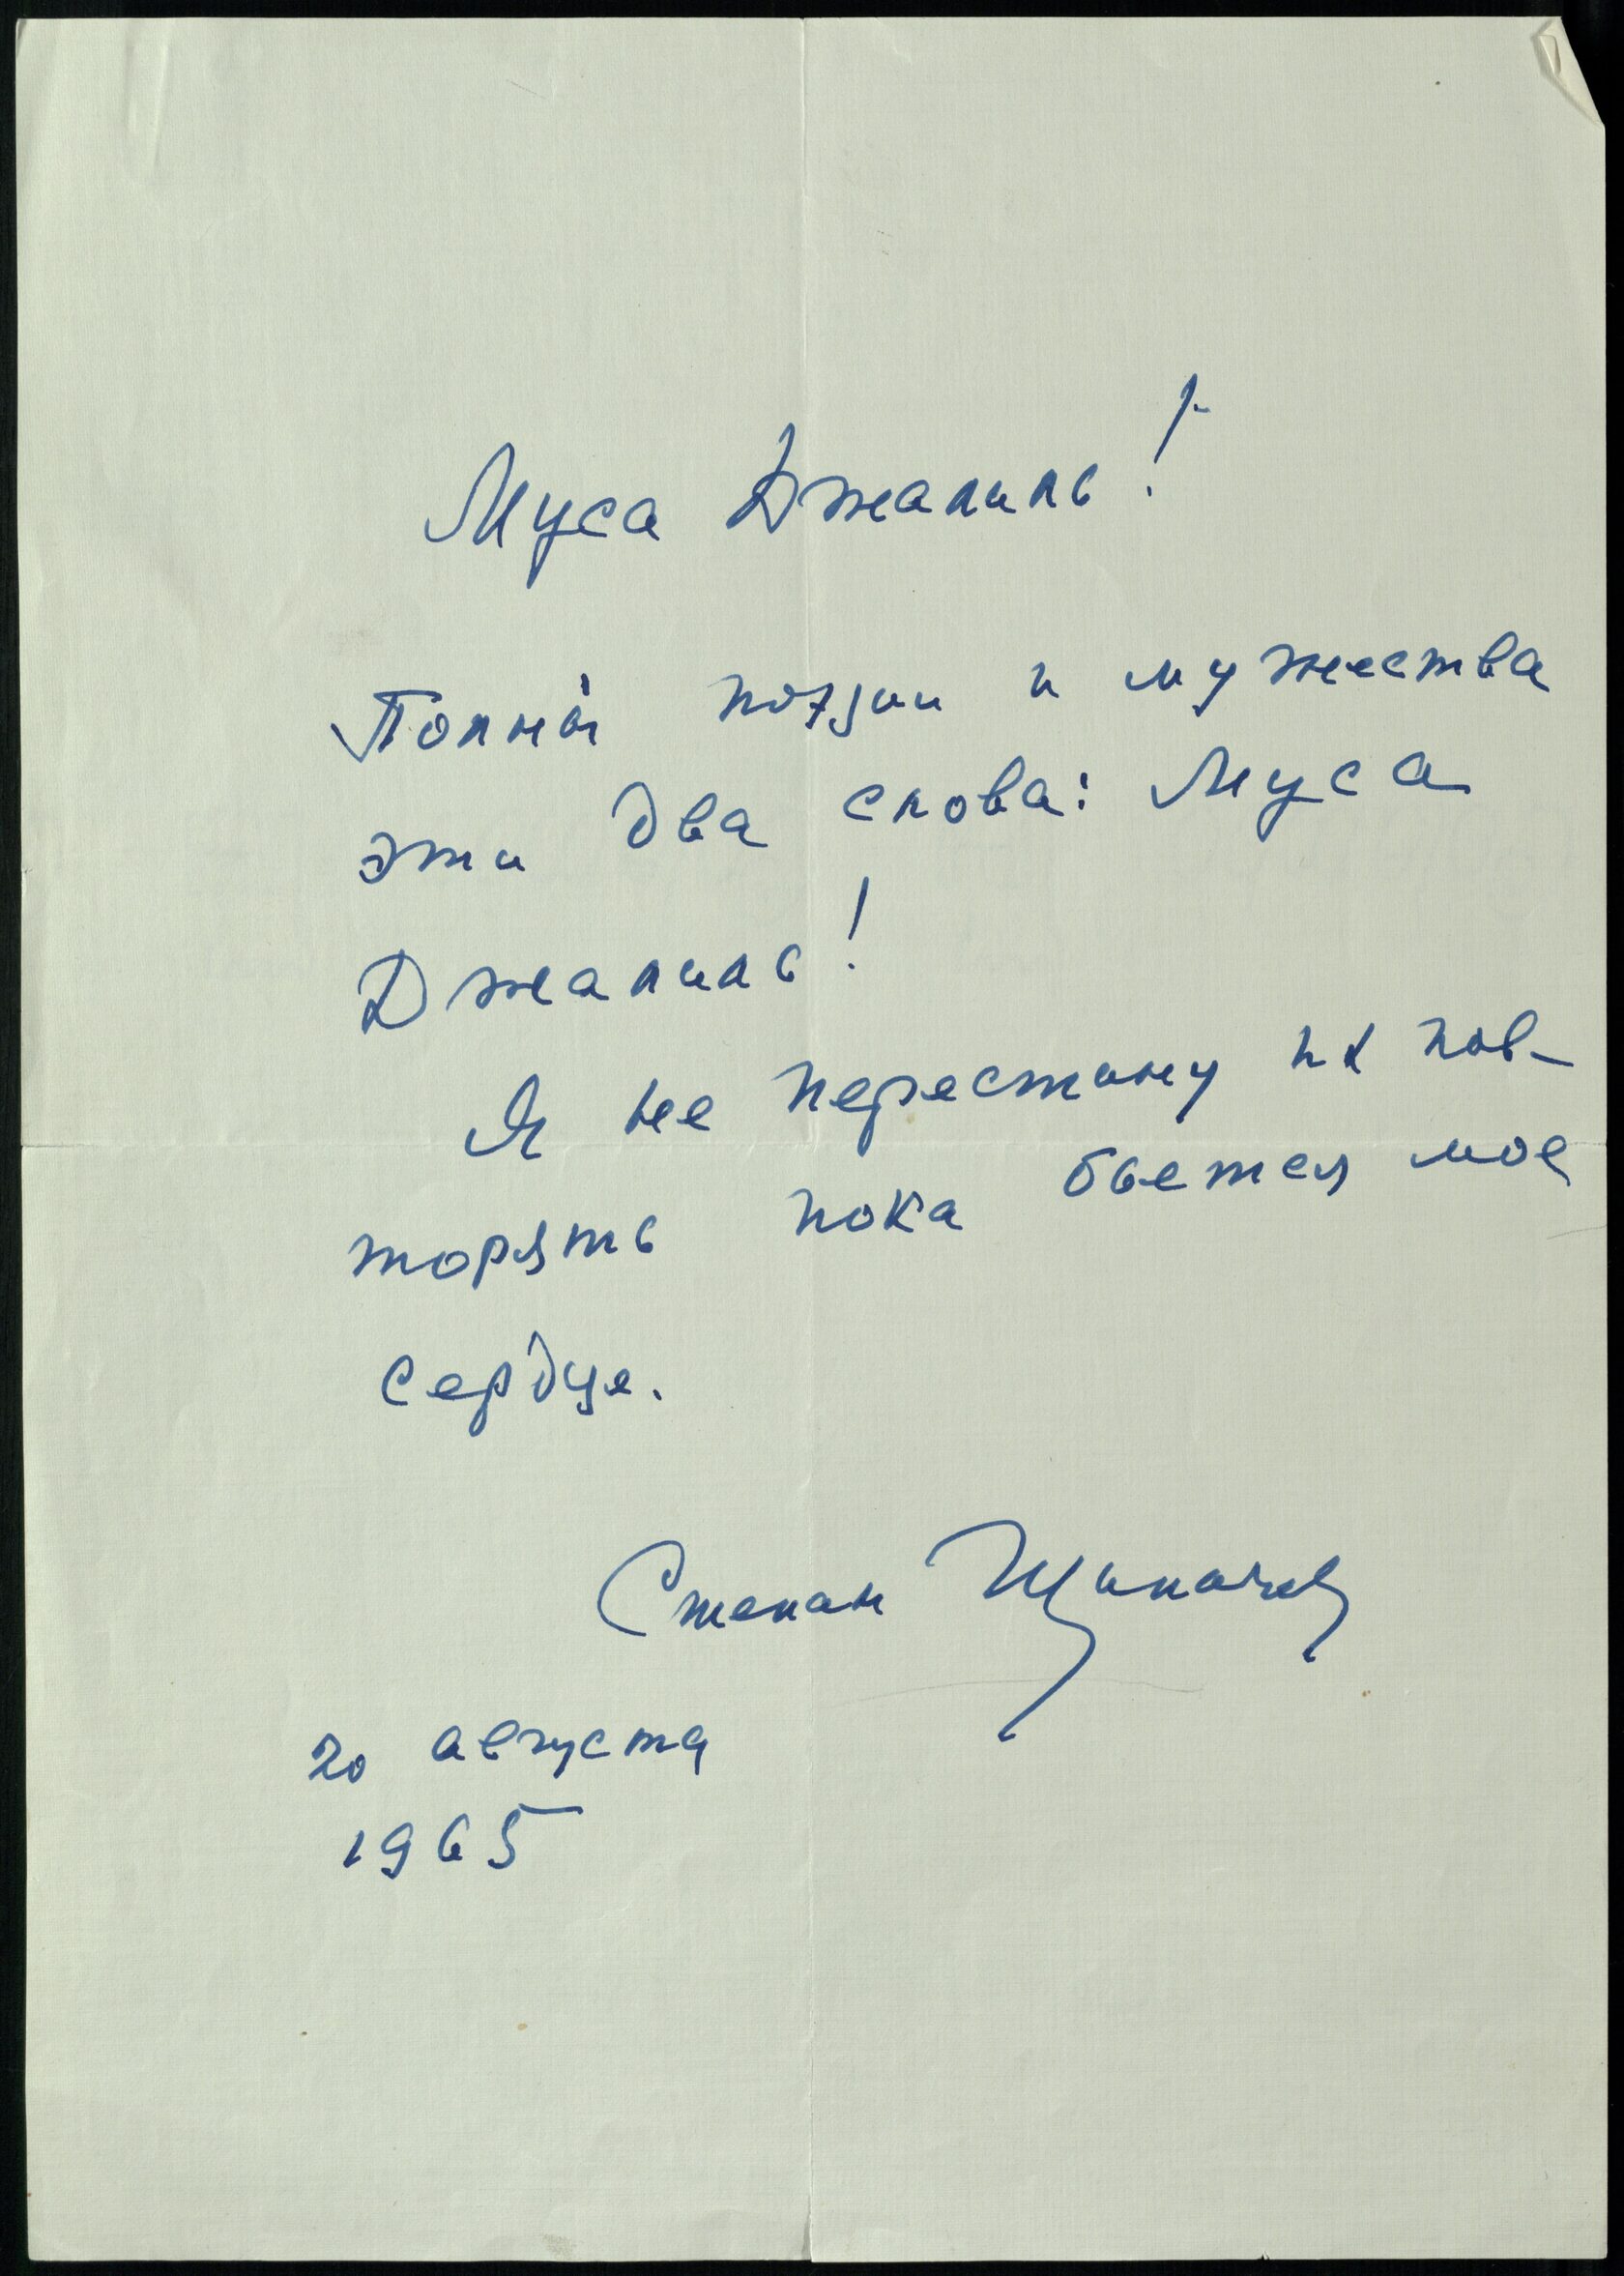 Муса Джалиль!
Полны поэзии и мужества
эти два слова: Муса
Джалиль!
Я не перестану их пов-
торять пока бьется мое
сердце.
Степан Щипачев
20 августа
1965